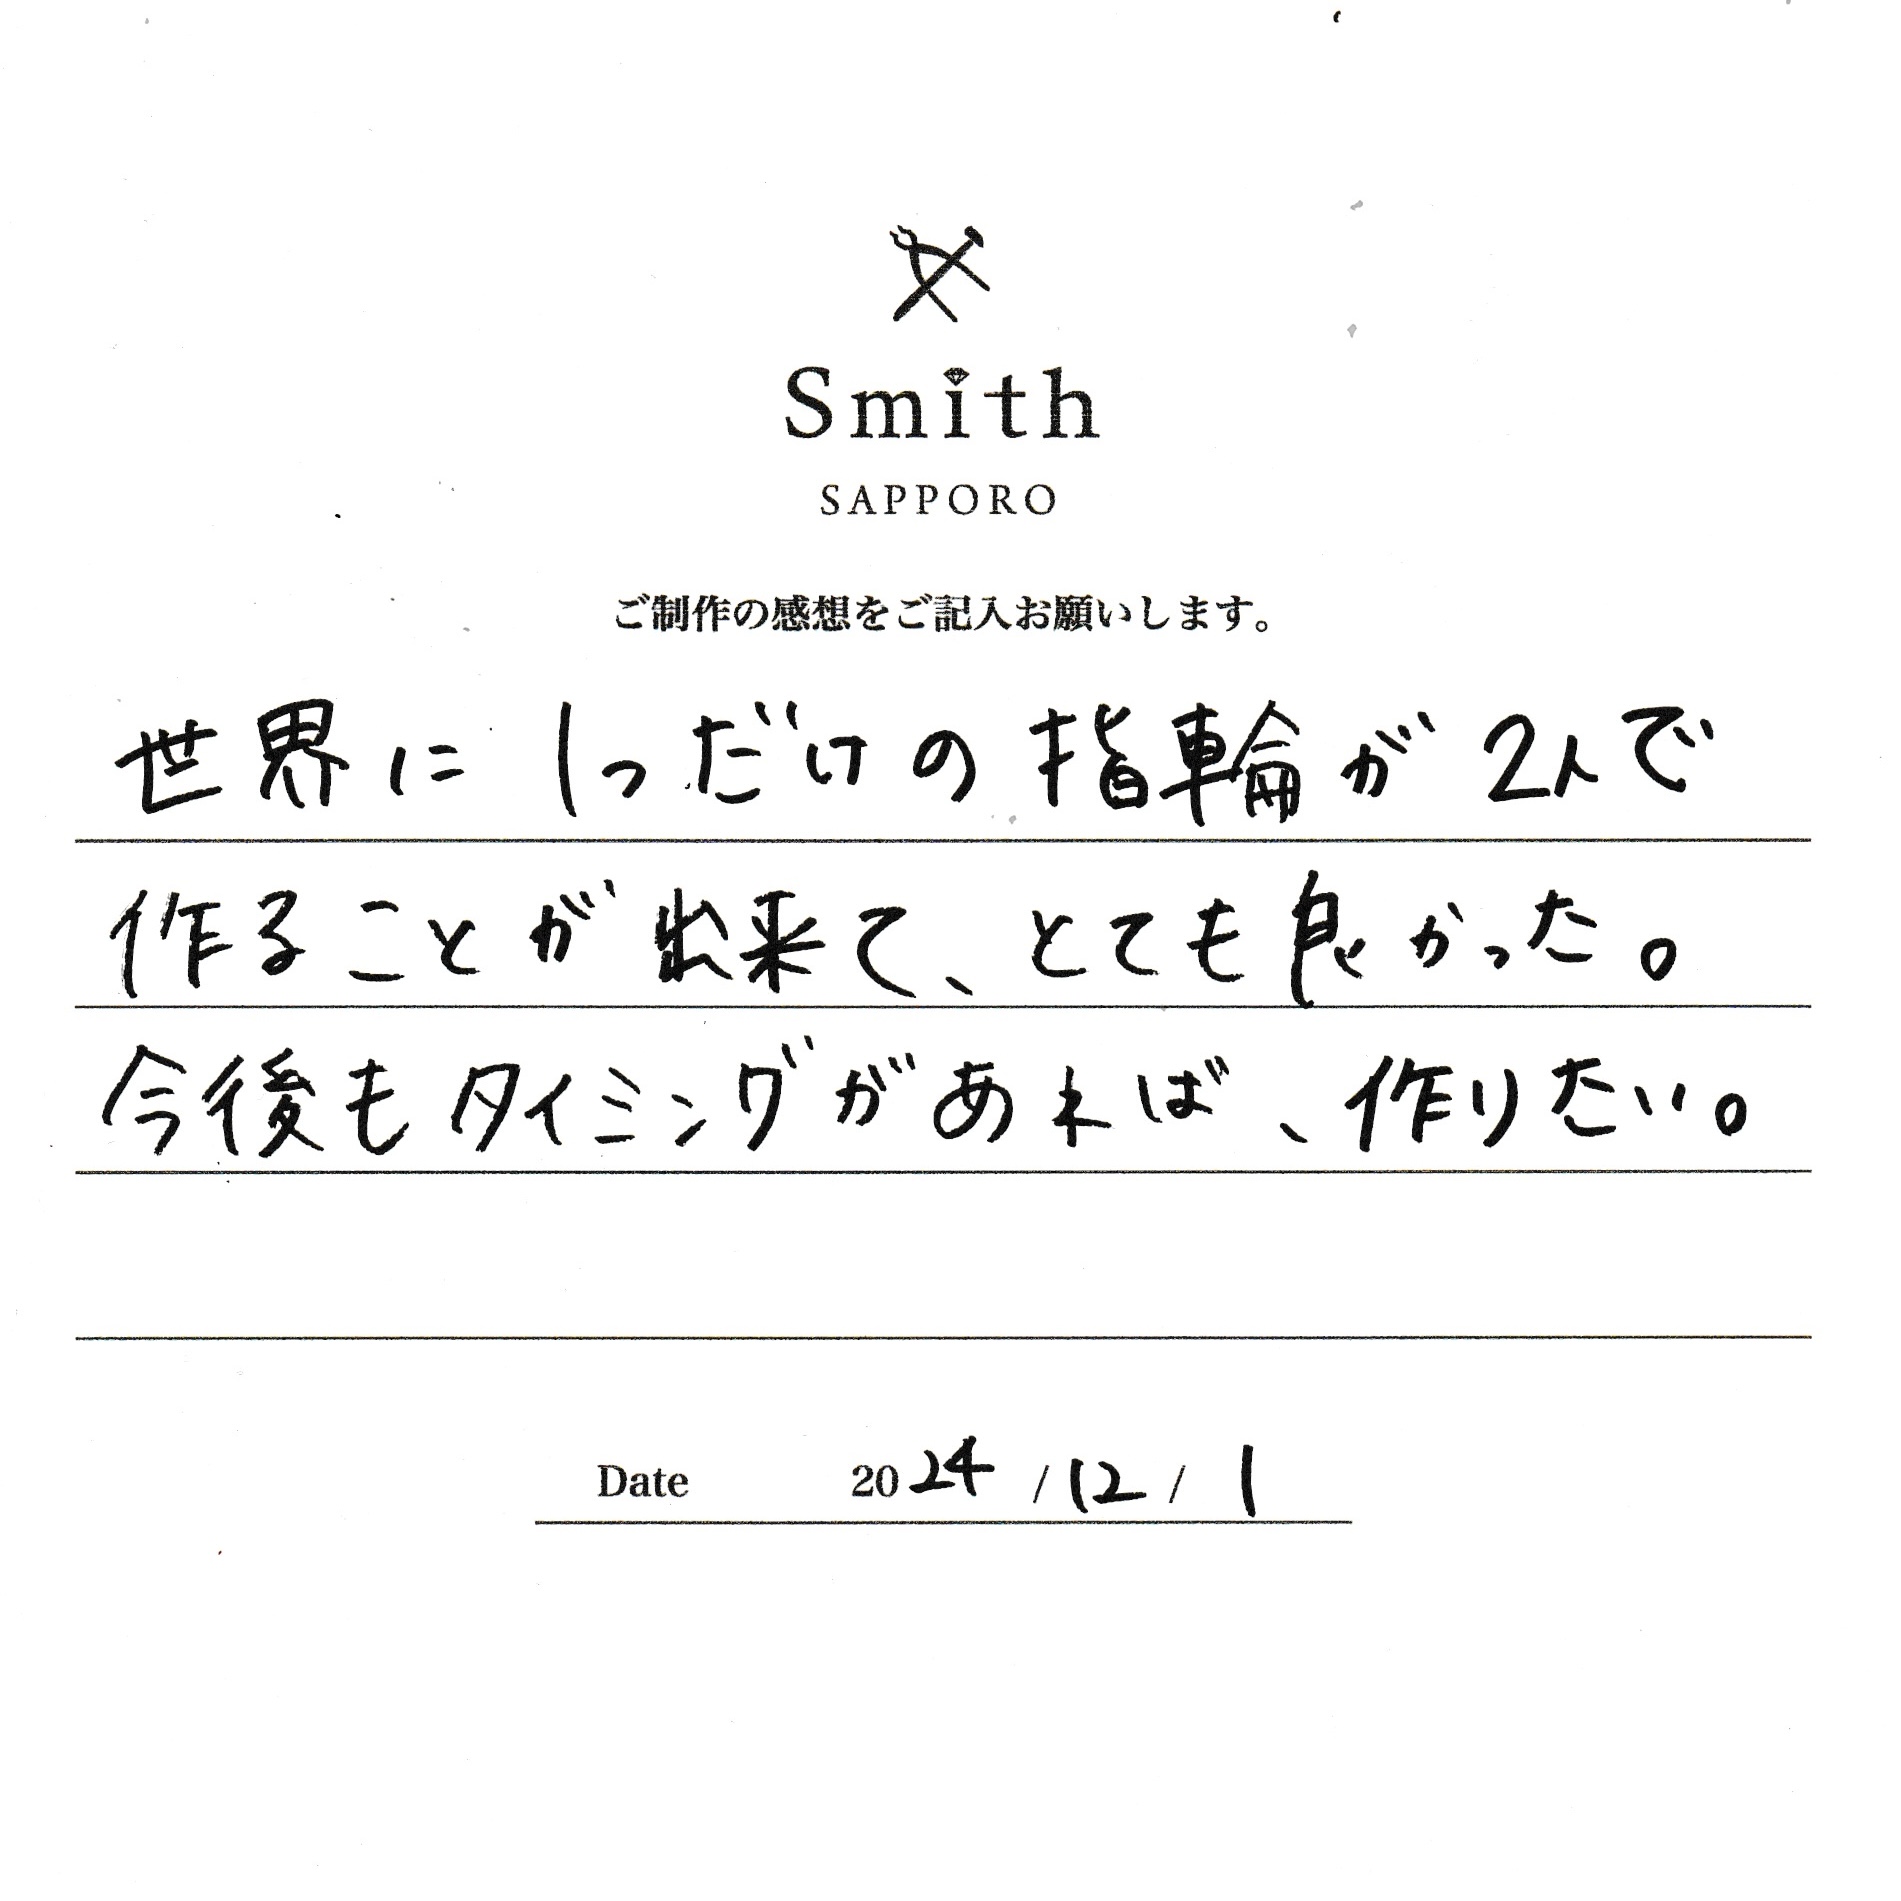 Smith
SAPPORO
ご制作の感想をご記入お願いします。
世界に1つだけの指輪が2人で
作ることが出来て、とても良かった。
今後もタイミングがあれば、作りたい。
Date 2024/12/1